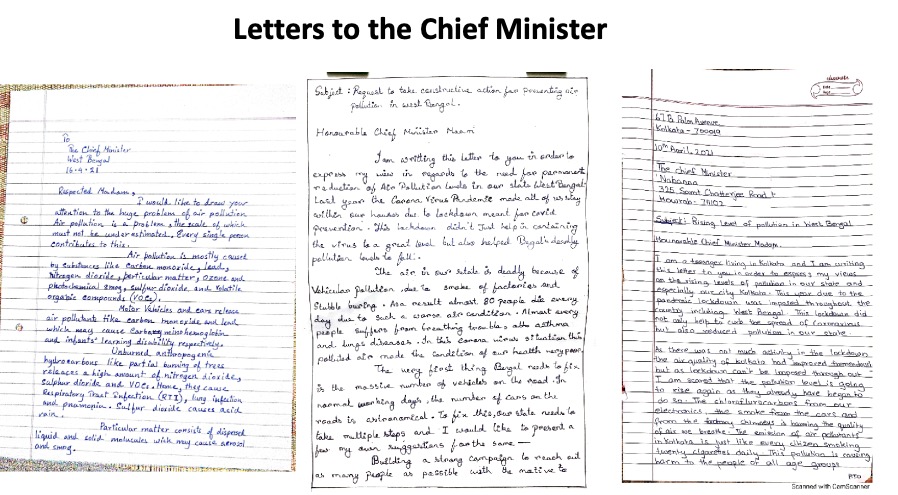 Letters to the Chief Minister
To
The Chief Minister
West Bengal
16-4-21
Respected Madam,
I would like to draw your
attention to the huge problem of air pollution
Air pollution is a problem, the scale of which
must not be underestimated. Every single person
contributes to this.
Air pollution is mostly caused
by substances like carbon monoxide, lead,
nitrogen dioxide, perticular matter, ozone and
photochemical smog, sulfur dioxide, and volatile
organic compounds (VOCs).
Motor Vehicles and cars release
air pollutants like carbon monoxide and lead
which may cause
and infants' learning disability respectively.
Unburned anthropogenic
hydrocarbons like partial burning of trees
releases a high amount of nitrogen dioxide,
Sulphur dioxide and VOCs. Hence, they cause
Respiratory Tract Infection (RTI), lung infection
and pneumonia. Sulfur dioxide causes acid
rain.
Particular matter consists of dispersed
liquid and solid molecules wich may cause aerosol
and smog.
Subject : Request to take constructive action for preventing air
pollution in West Bengal.
Honourable Chief Minister Maam
I am writing this letter to you in order to
express my view in regards to the need for permanent
reduction of Air Pollution levels in our state West Bengal
Last year the Corona Virus Pandemic made all of us stay
within our houses due to lockdown meant for covid
prevention. This lockdown didn't just help in containing
the virus to a great level but also helped Bengal's deadly
pollution levels to fall.
The air in our state is deadly because of
Vehicular pollution, due to smoke of factories and
Stubble burning. As a result almost 80 people die every
day due to such a worse air condition. Almost every
people suffers from breathing troubles, asthma
and lungs diseases. In this corona virus situation this
polluted air made the condition of our health very poor.
The very first thing Bengal needs to fix
is the massive number of vehicles on the road. In
normal working days, the number of cars on the
roads is astronomical. To fix this, our state needs to
take multiple steps and I would like to present a
few my own suggestions for the same —
Building a strong campaign to reach out
as many people as possible with the motive to
67 B Palm Avenue
Kolkata - 700019
10th April, 2021
The Chief Minister
'Nabanna'
325, Sarat Chatterjee Road
Howrah - 711102
Subject: Rising level of pollution in West Bengal
Honourable Chief Minister Madam,
I am a teenager living in Kolkata and I am writing
this letter to you in order to express my views
on the rising levels of pollution in our state and
especially our city Kolkata. This year due to the
pandemic lockdown was imposed throughout the
country including West Bengal. This lockdown did
not only help to curb the spread of coronavirus
but also reduced pollution in our state.
As there was not much activity in the lockdown
the air quality of Kolkata had improved tremendously
but as lockdown can't be imposed through out
I am scared that the pollution level is going
to rise again as they already have begun to
do so. The chlorofluorocarbons from our
electronics, the smoke from the cars and
from the factory chimneys is harming the quality
of air we breathe. The emission of air pollutants
in Kolkata is just like every citizen smoking
twenty cigarettes daily. This pollution is causing
harm to the people of all age groups
PTO
Scanned with CamScanner